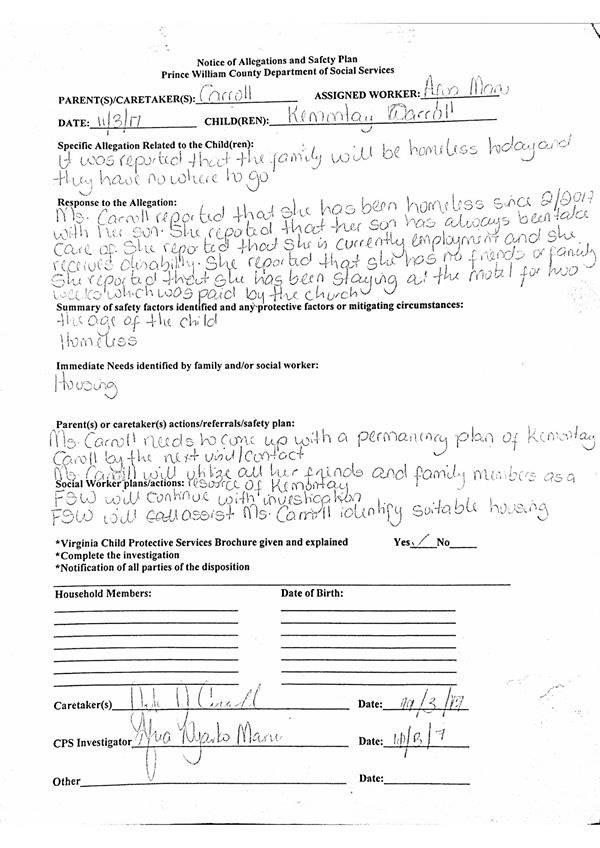 Notice of Allegations and Safety Plan
Prince William County Department of Social Services
PARENT(S)/CARETAKER(S): Carroll ASSIGNED WORKER: Afua Manu
DATE: 11/3/17 CHILD(REN): Kemontay Carroll
Specific Allegation Related to the Child(ren):
It was reported that the family will be homeless today and
they have no where to go
Response to the Allegation:
Ms. Carroll reported that she has been homeless since 2/2017
with her son. She reported that her son has always been take
care of. She reported that she is currently employment and she
receives disability. She reported that she has no friends or family
She reported that she has been staying at the motel for two
weeks which was paid by the church
Summary of safety factors identified and any protective factors or mitigating circumstances:
the age of the child
Homeless
Immediate Needs identified by family and/or social worker:
Housing
Parent(s) or caretaker(s) actions/referrals/safety plan:
Ms. Carroll needs to come up with a permanency plan of Kemontay
Caroll by the next visit/contact
Ms. Carroll will utilize all her friends and family members as a
Social Worker plans/actions: resource of Kemontay
FSW will continue with investigation
FSW will assist Ms. Carroll identify suitable housing
*Virginia Child Protective Services Brochure given and explained Yes ✓ No
*Complete the investigation
*Notification of all parties of the disposition
Household Members: Date of Birth:
Caretaker(s) Date:
CPS Investigator Afua Nyarko Manu Date:
Other Date: